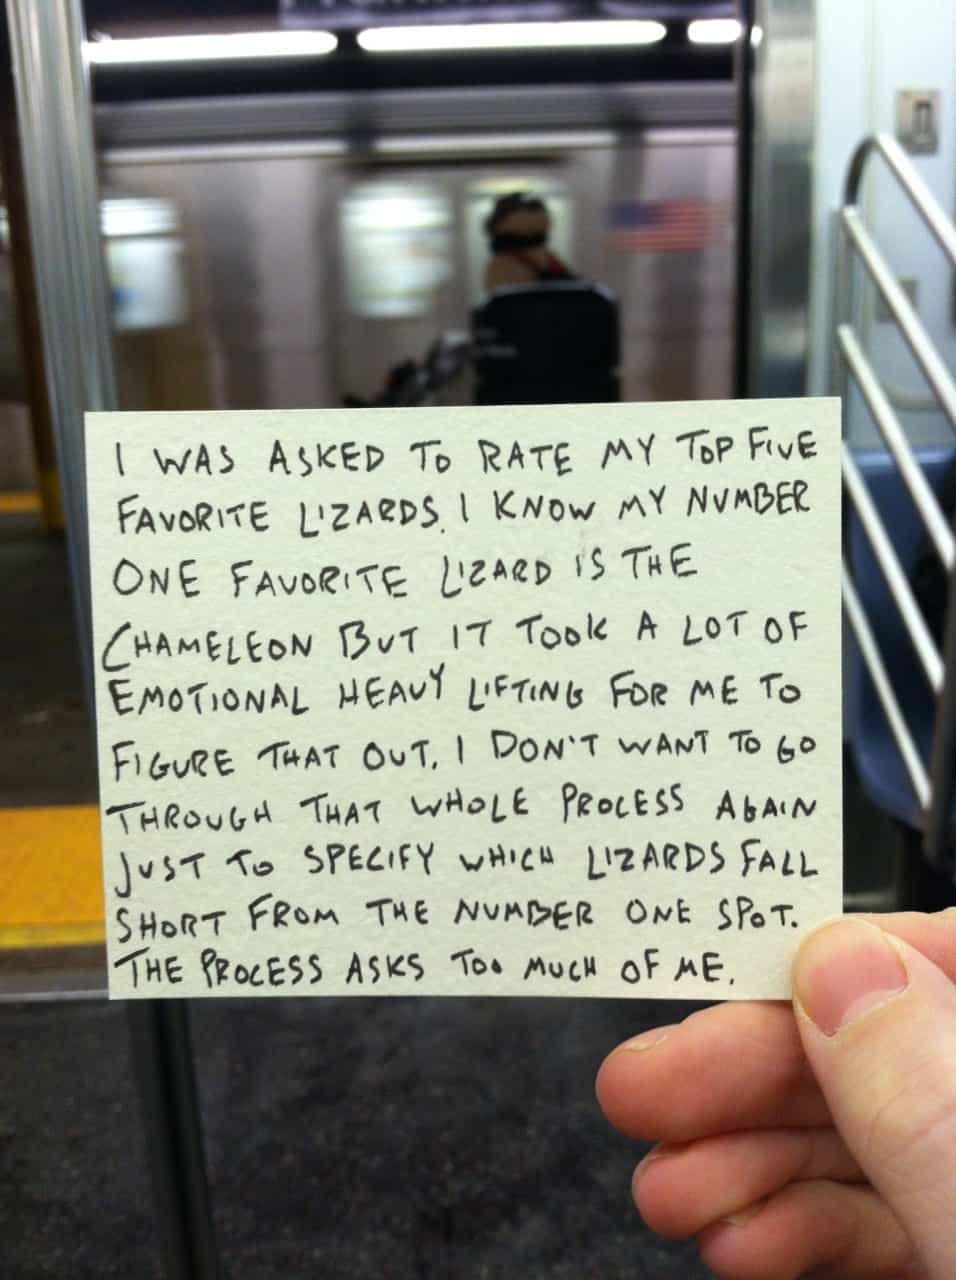 I WAS ASKED TO RATE MY TOP FIVE
FAVORITE LIZARDS. I KNOW MY NUMBER
ONE FAVORITE LIZARD IS THE
CHAMELEON BUT IT TOOK A LOT OF
EMOTIONAL HEAVY LIFTING FOR ME TO
FIGURE THAT OUT. I DON'T WANT TO GO
THROUGH THAT WHOLE PROCESS AGAIN
JUST TO SPECIFY WHICH LIZARDS FALL
SHORT FROM THE NUMBER ONE SPOT.
THE PROCESS ASKS TOO MUCH OF ME.